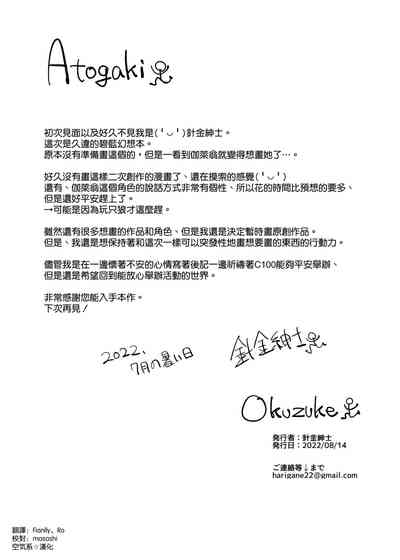 Atogaki
初次見面以及好久不見我是( '◡' )針金紳士。
這次是久違的碧藍幻想本。
原本沒有準備畫這個的，但是一看到伽萊翁就變得想畫她了…。
好久沒有畫這樣二次創作的漫畫了、還在摸索的感覺( '◡' )
還有、伽萊翁這個角色的說話方式非常有個性、所以花的時間比預想的要多、
但是還好平安趕上了。
→可能是因為玩只狼才這麼趕。
雖然還有很多想畫的作品和角色、但是我還是決定暫時畫原創作品。
但是、我還是想保持著和這次一樣可以突發性地畫想要畫的東西的行動力。
儘管我是在一邊懷著不安的心情寫著後記一邊祈禱著C100能夠平安舉辦、
但是還是希望回到能放心舉辦活動的世界。
非常感謝您能入手本作。
下次再見！
2022、
7月の暑い日
針金紳士
Okuzuke
発行者：針金紳士
発行日：2022/08/14
ご連絡等↓まで
harigane22@gmail.com
翻譯：Fionlly、Ro
校對：masashi
空気系☆漢化